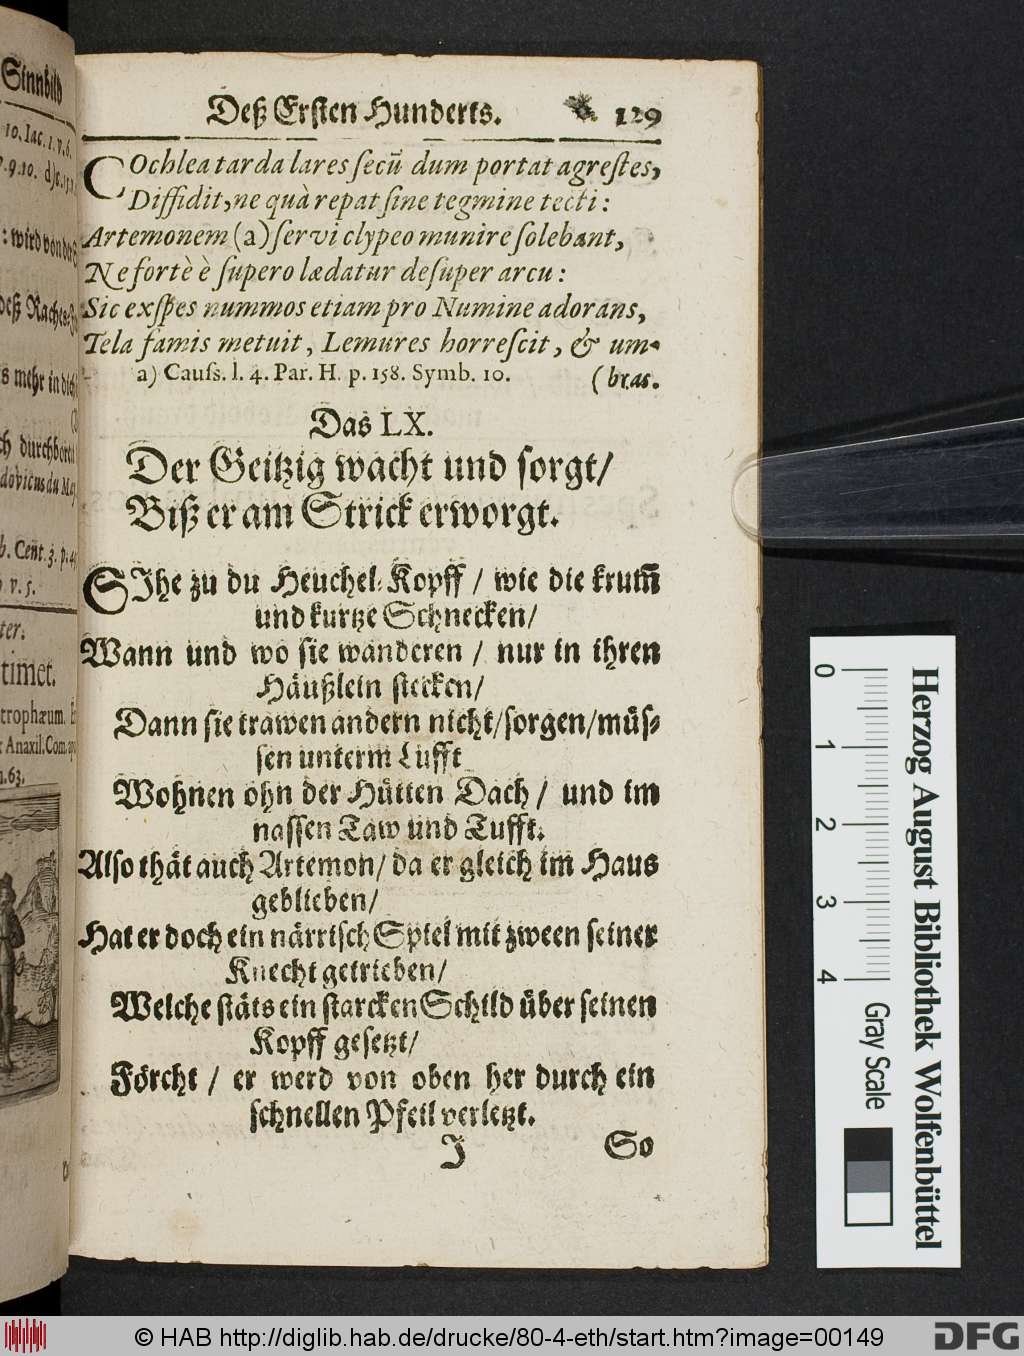 Sinnbild
10. Iac. 1. v. 6.
timet.
Deß Ersten Hunderts. 129
COchlea tarda lares secū dum portat agrestes,
Diffidit, ne quà repat sine tegmine tecti:
Artemonem (a) servi clypeo munire solebant,
Ne fortè è supero lædatur desuper arcu:
Sic exspes nummos etiam pro Numine adorans,
Tela famis metuit, Lemures horrescit, & um-
a) Causs. l. 4. Par. H. p. 158. Symb. 10. (bras.
Das LX.
Der Geitzig wacht und sorgt/
Biß er am Strick erworgt.
SIhe zu du Heuchel-Kopff / wie die krum̄
und kurtze Schnecken/
Wann und wo sie wanderen / nur in ihren
Häußlein stecken/
Dann sie trawen andern nicht/sorgen/müs-
sen unterm Lufft
Wohnen ohn der Hütten Dach / und im
nassen Taw und Tufft.
Also thät auch Artemon/ da er gleich im Haus
geblieben/
Hat er doch ein närrisch Spiel mit zween seiner
Knecht getrieben/
Welche stäts ein starcken Schild über seinen
Kopff gesetzt/
Förcht / er werd von oben her durch ein
schnellen Pfeil verletzt.
J So
0 1 2 3 4
Herzog August Bibliothek Wolfenbüttel
Gray Scale
© HAB http://diglib.hab.de/drucke/80-4-eth/start.htm?image=00149
DFG